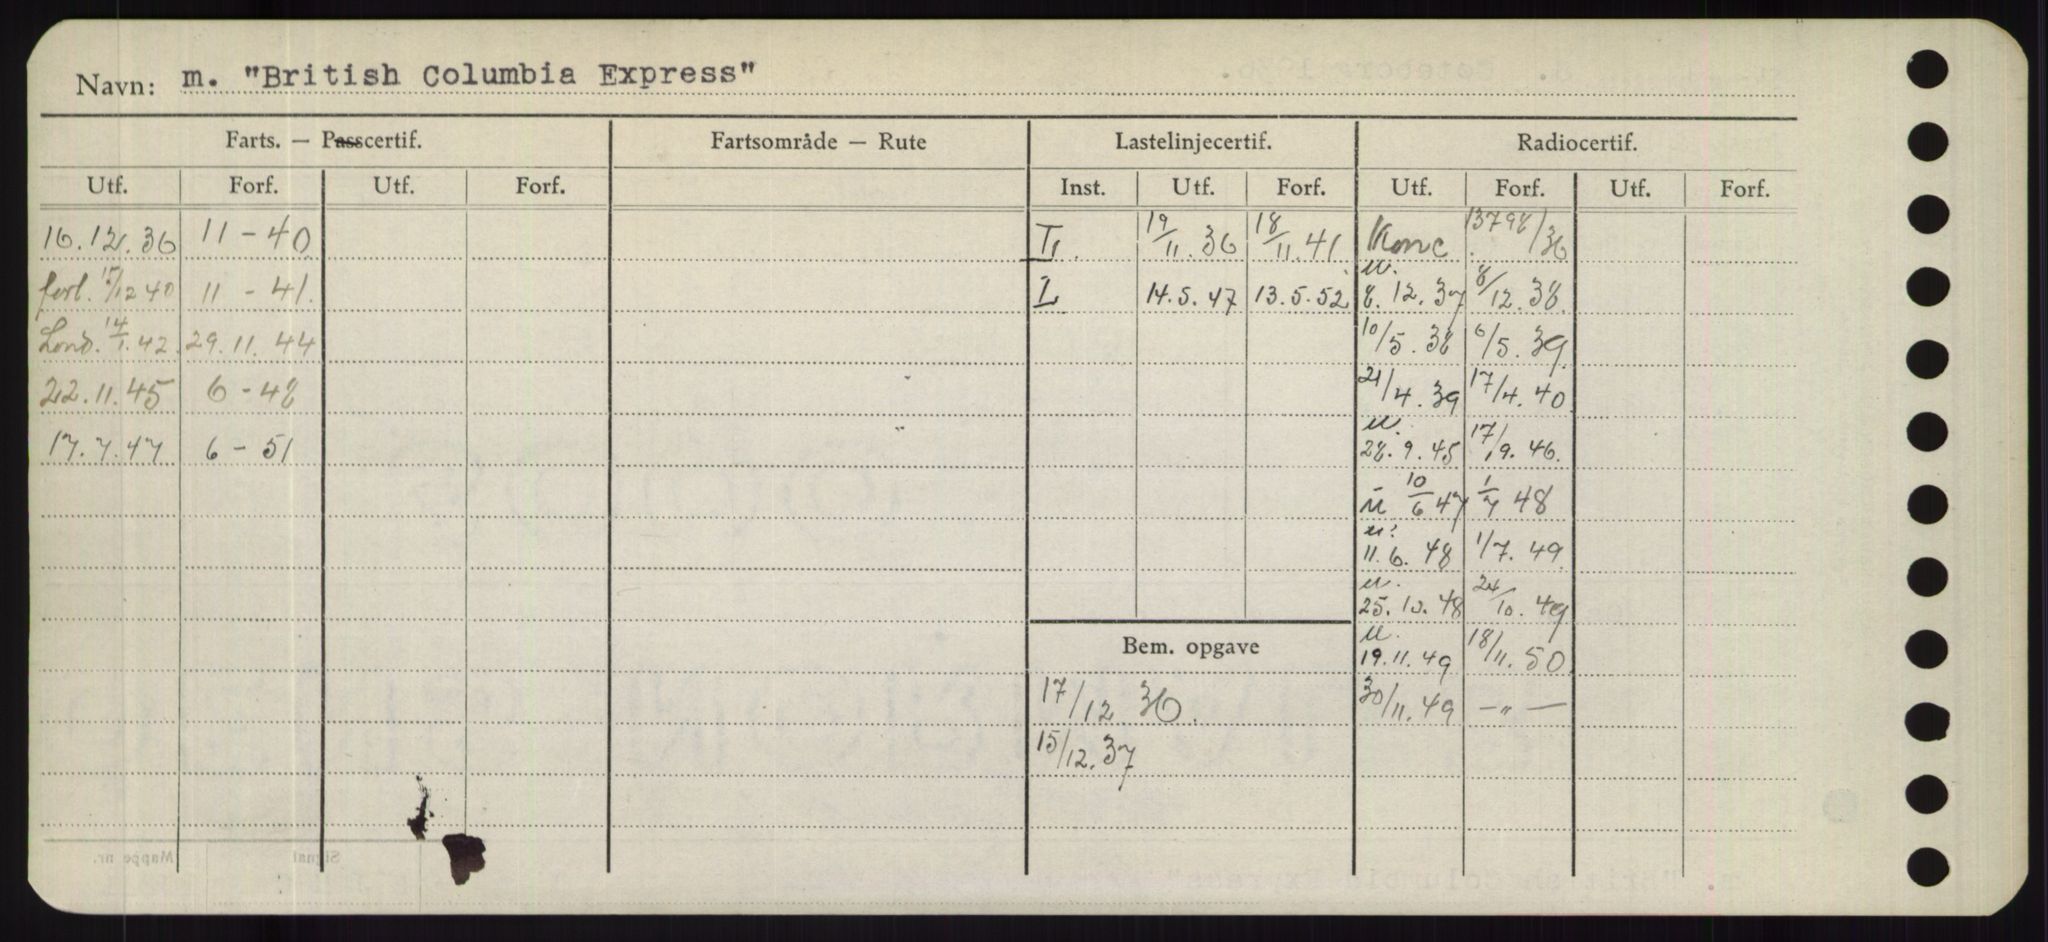 Navn: m. "British Columbia Express"
Farts. — Passcertif. Fartsområde — Rute Lastelinjecertif. Radiocertif.
Utf. Forf. Utf. Forf. Inst. Utf. Forf. Utf. Forf. Utf. Forf.
16.12.36 11-40 19/11.36 18/11.41 Konc 13798/36
forl. 12 40 11-41. L 14.5.47 13.5.52 u. 8.12.37 8/12.38
Lond. 14/1.42. 29.11.44 10/5.38 6/5.39
22.11.45 6-48 21/4.39 17/4.40
17.7.47 6-51 u. 28.9.45 17/9.46
u 10/6 47 1/7 48
u. 11.6.48 1/7.49
u. 25.10.48 24/10.49
Bem. opgave u. 19.11.49 18/11.50
17/12 36. 30/11.49 —"—
15/12.37
Mappe nr. Signal